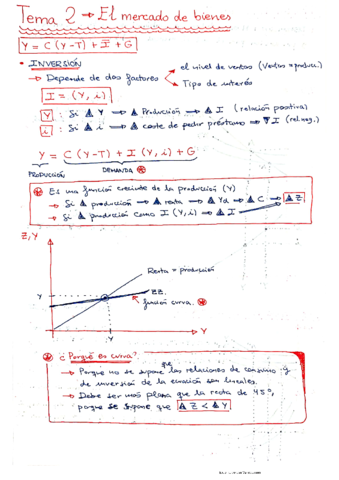 Tema 2 → El mercado de bienes
Y = C (Y-T) + I + G
• INVERSIÓN
→ Depende de dos factores
el nivel de ventas (Ventas = produc.)
Tipo de interés
I = (Y, i)
Y : Si ▲ Y → ▲ Producción → ▲ I (relación positiva)
i : Si ▲ i → ▲ coste de pedir préstamo → ▼ I (rel. neg.)
Y = C (Y-T) + I (Y, i) + G
PRODUCCIÓN
DEMANDA
Es una función creciente de la producción (Y)
→ Si ▲ producción → ▲ renta → ▲ Yd → ▲ C → ▲ Z
→ Si ▲ producción como I (Y, i) → ▲ I
Z, Y
Renta = producción
ZZ
función curva.
Y
Y
Y
¿ Porqué es curva?
→ Porque no se supone que las relaciones de consumo y
de inversión de la ecuación son lineales.
→ Debe ser más plana que la recta de 45º,
porque se supone que ▲ Z < ▲ Y